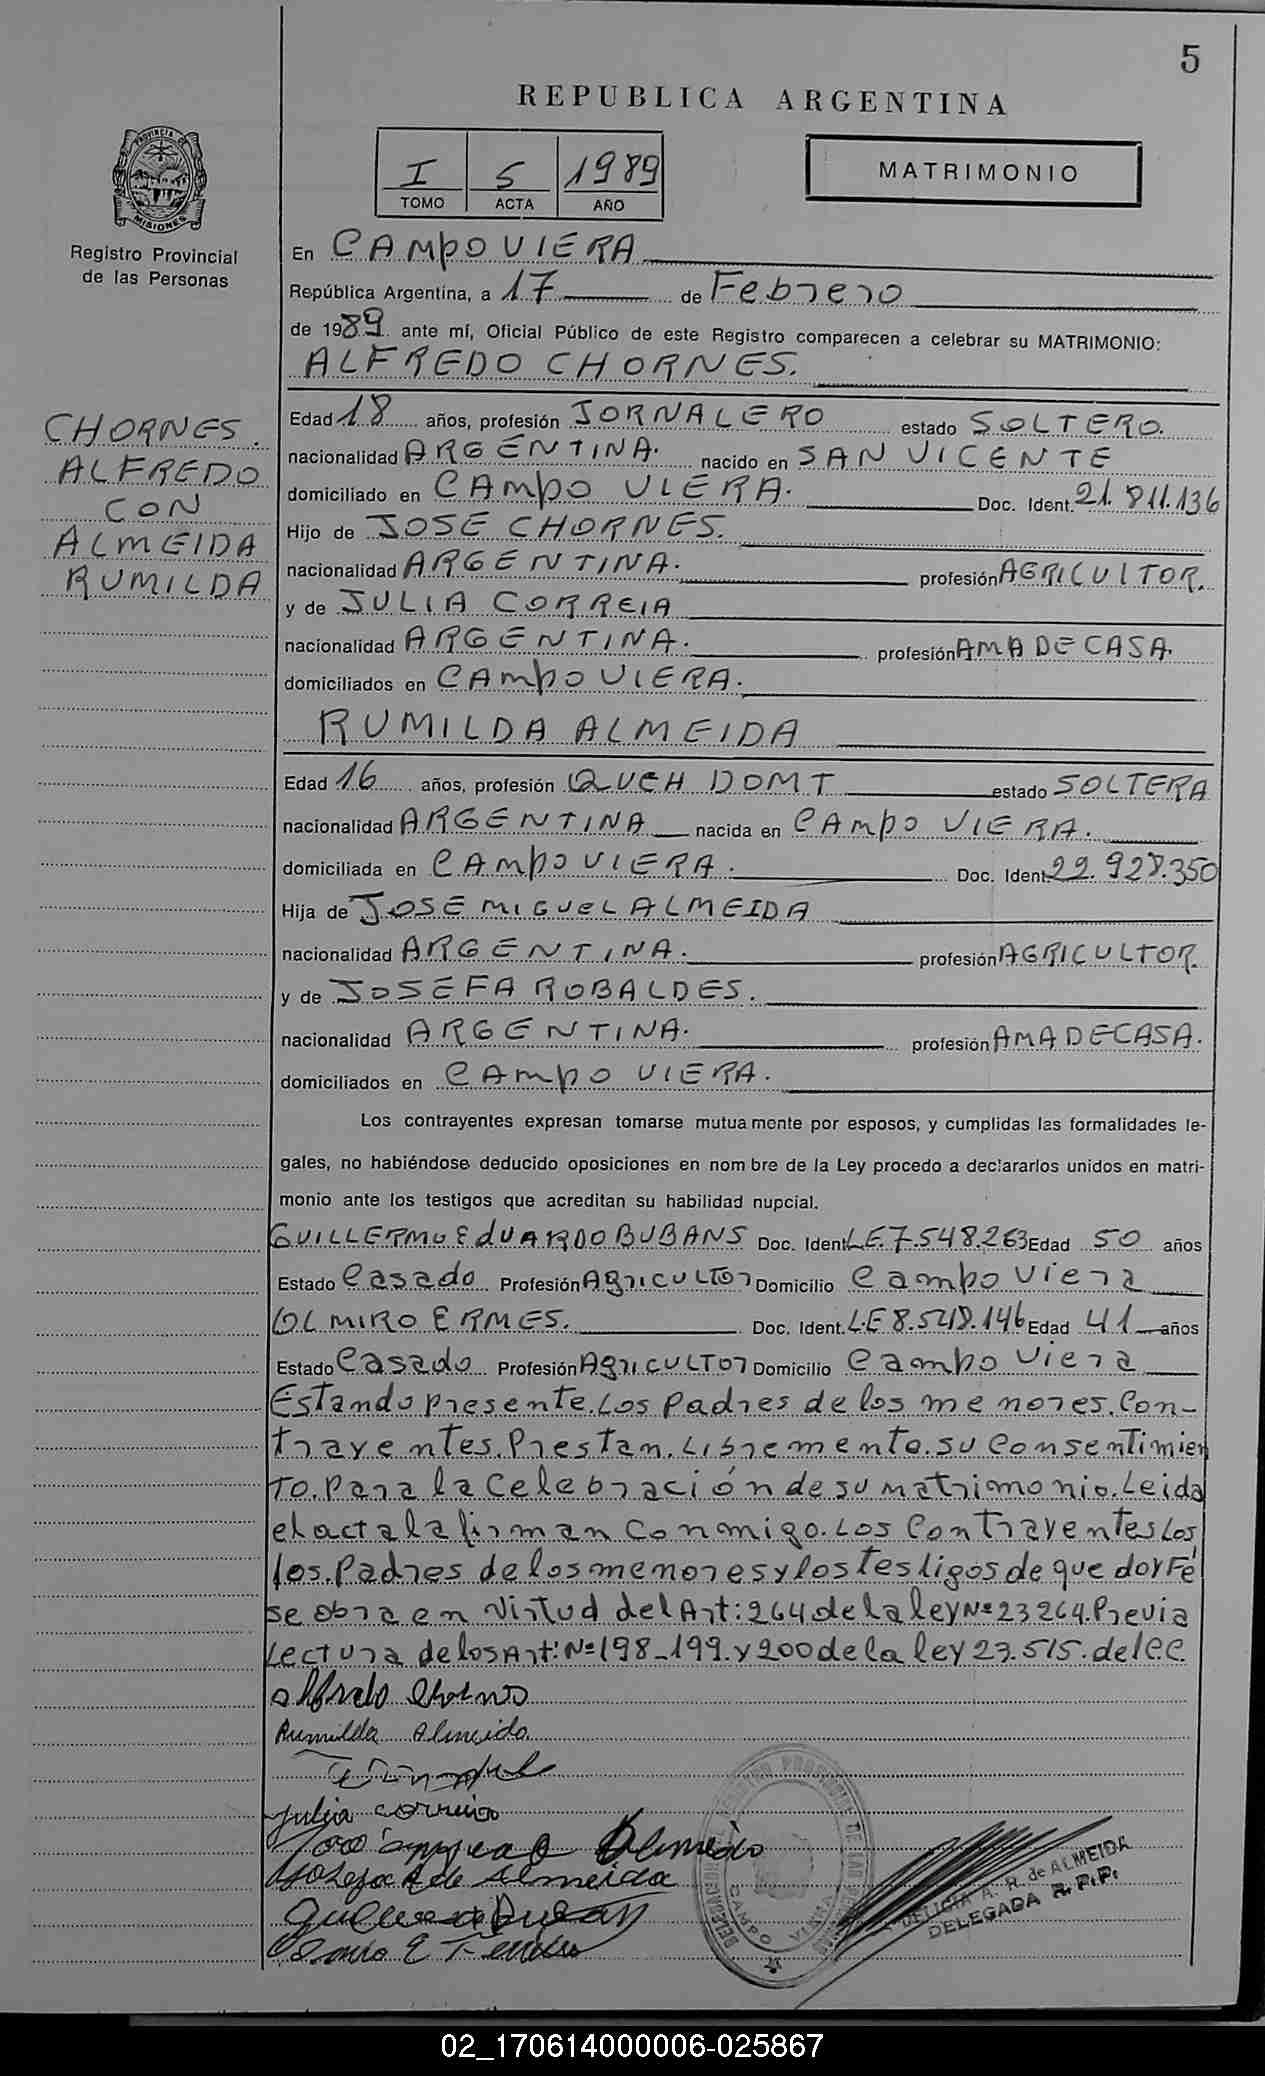 5
REPUBLICA ARGENTINA
PROVINCIA DE
MISIONES
Registro Provincial
de las Personas
I S 1989
TOMO ACTA AÑO
MATRIMONIO
En CAMPO VIERA
República Argentina, a 17 de Febrero
de 1989 ante mí, Oficial Público de este Registro comparecen a celebrar su MATRIMONIO:
ALFREDO CHORNES.
CHORNES.
ALFREDO
CON
ALMEIDA
RUMILDA
Edad 18 años, profesión JORNALERO estado SOLTERO.
nacionalidad ARGENTINA. nacido en SAN VICENTE
domiciliado en CAMPO VIERA. Doc. Ident. 21.811.136
Hijo de JOSE CHORNES.
nacionalidad ARGENTINA. profesión AGRICULTOR.
y de JULIA CORREIA
nacionalidad ARGENTINA. profesión AMA DE CASA.
domiciliados en CAMPO VIERA.
RUMILDA ALMEIDA
Edad 16 años, profesión QUEH DOMT estado SOLTERA
nacionalidad ARGENTINA nacida en CAMPO VIERA.
domiciliada en CAMPO VIERA. Doc. Ident. 22.928.350
Hija de JOSE MIGUEL ALMEIDA
nacionalidad ARGENTINA. profesión AGRICULTOR.
y de JOSEFA ROBALDES.
nacionalidad ARGENTINA. profesión AMA DE CASA.
domiciliados en CAMPO VIERA.
Los contrayentes expresan tomarse mutuamente por esposos, y cumplidas las formalidades le-
gales, no habiéndose deducido oposiciones en nombre de la Ley procedo a declararlos unidos en matri-
monio ante los testigos que acreditan su habilidad nupcial.
GUILLERMO EDUARDO BUBANS Doc. Ident. L.E.7.548.263 Edad 50 años
Estado Casado Profesión AGRICULTOR Domicilio Campo Viera
OLMIRO ERMES. Doc. Ident. L.E 8.548.146 Edad 41 años
Estado Casado Profesión AGRICULTOR Domicilio Campo Viera
Estando presente. Los Padres de los menores. Con-
trayentes. Prestan. Libremente. su Consentimien
to. Para la Celebración de su matrimonio. Leida
el acta la firman Conmigo. Los Contrayentes Los
los. Padres de los menores y los testigos de que doy Fé
se obra en Virtud del Art: 264 de la ley Nº 23264. Previa
Lectura de los Art: Nº 198_199. y 200 de la ley 23.515. del C.C.
Alfredo Chornes
Rumilda Almeida
Julia Correia
Almeida
Josefa R de Almeida
CAMPO VIERA
DELICIA A. R. de ALMEIDA
DELEGADA R.P.P.
02_170614000006-025867